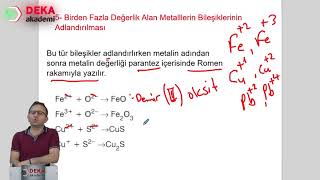 DEKA
akademi
5- Birden Fazla Değerlik Alan Metallerin Bileşiklerinin
Adlandırılması
Bu tür bileşikler adlandırılırken metalin adından
sonra metalin değerliği parantez içerisinde Romen
rakamıyla yazılır.
Fe+2, Fe+3
Cu+1, Cu+2
Pb+2, Pb+4
Fe2+ + O2- →FeO : Demir (II) oksit
Fe3+ + O2- →Fe2O3
Cu2+ + S2- →CuS
Cu+ + S2- →Cu2S
DEKA
akademi